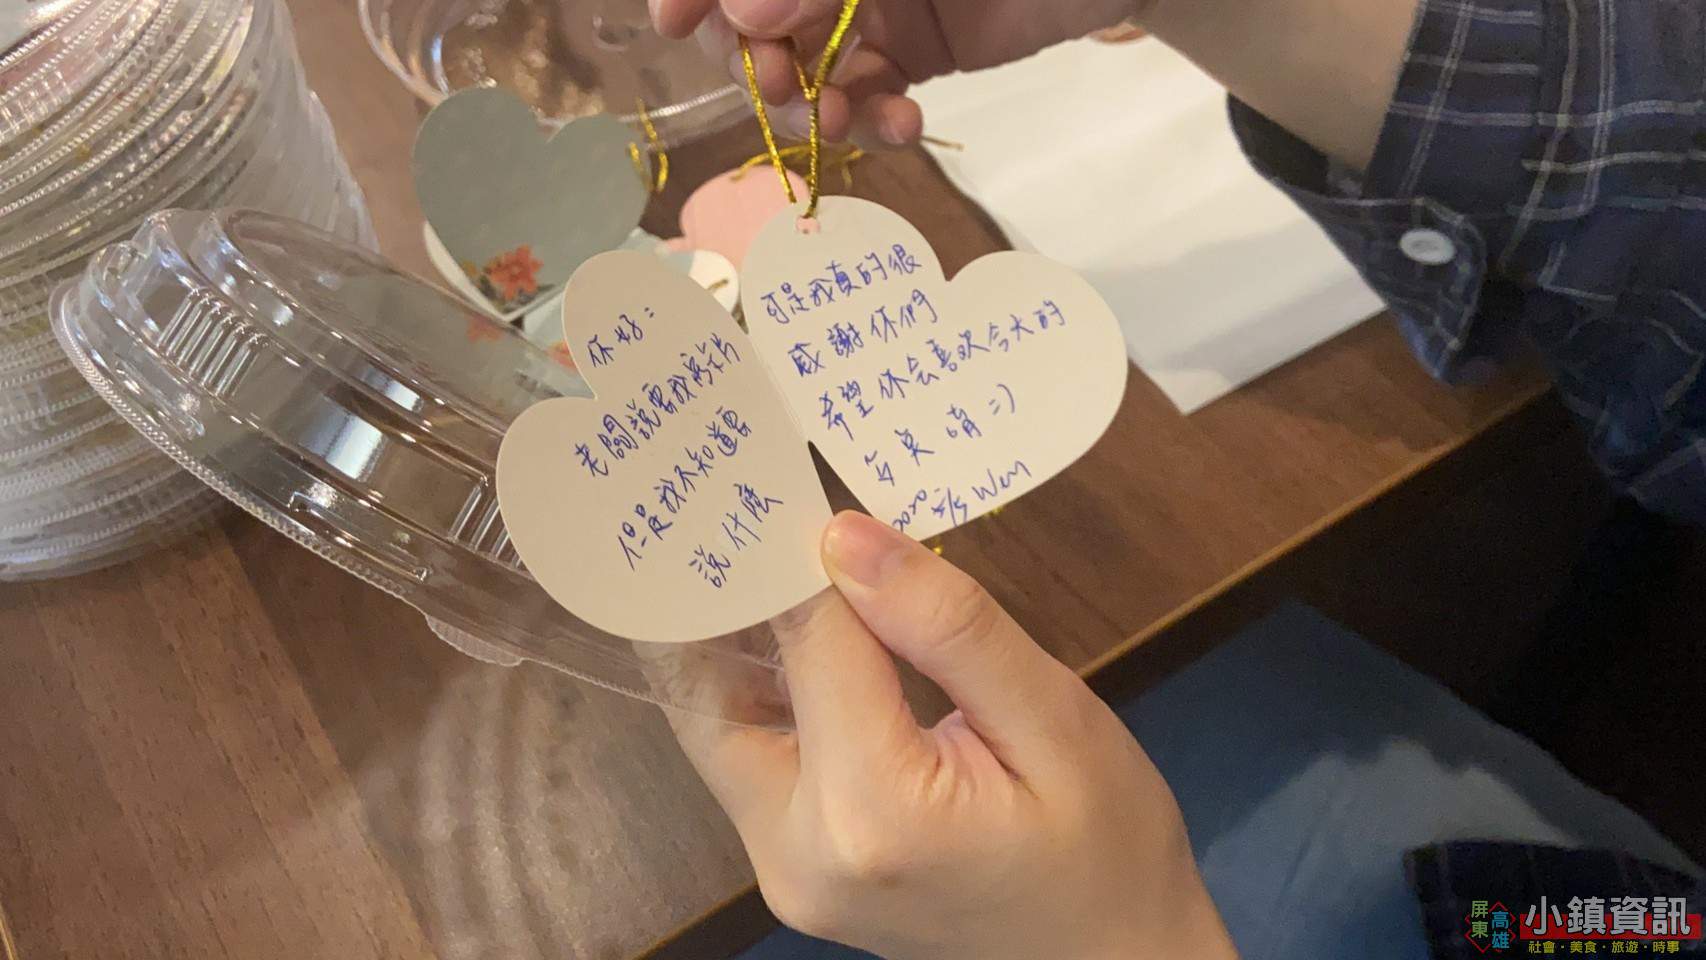 你好：
老闆說要我寫卡片
但是我不知道要
說什麼
可是我真的很
感謝你們
希望你会喜欢今天的
午点唷 :)
Wen
屏東
高雄
小鎮資訊
社會・美食・旅遊・時事